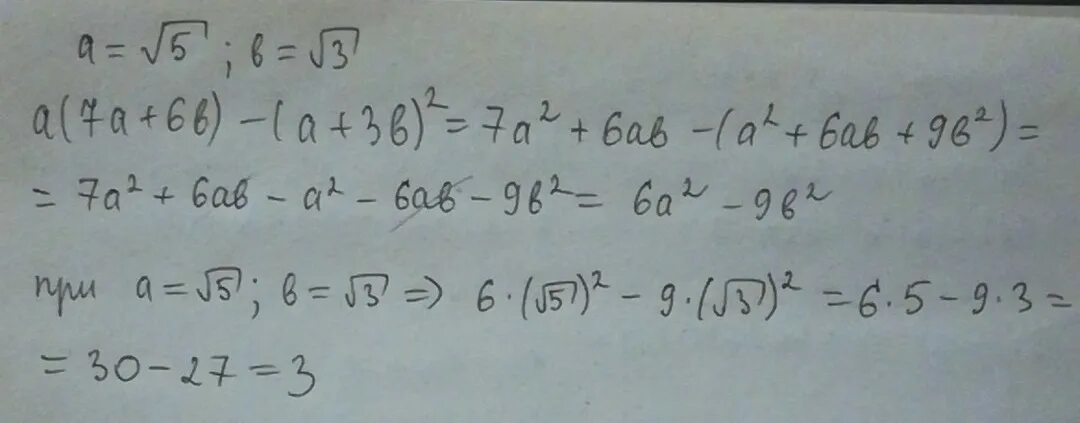 a = √5 ; в = √3
a(7a + 6в) - (a + 3в)² = 7a² + 6aв - (a² + 6aв + 9в²) =
= 7a² + 6aв - a² - 6aв - 9в² = 6a² - 9в²
при a = √5 ; в = √3 => 6·(√5)² - 9·(√3)² = 6·5 - 9·3 =
= 30 - 27 = 3